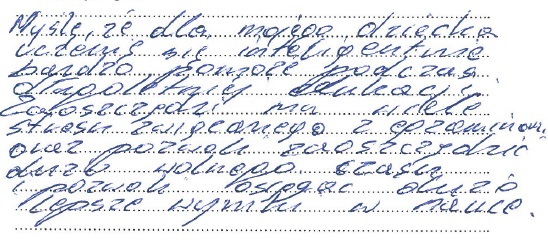 Myślę, że dla mojego dziecka
uczenie się inteligentnie
bardzo pomoże podczas
długoletniej edukacji.
Zaoszczędzi mu wiele
stresu związanego z egzaminami,
oraz pozwoli zaoszczędzić
dużo wolnego czasu
i pozwoli osiągać dużo
lepsze wyniki w nauce.